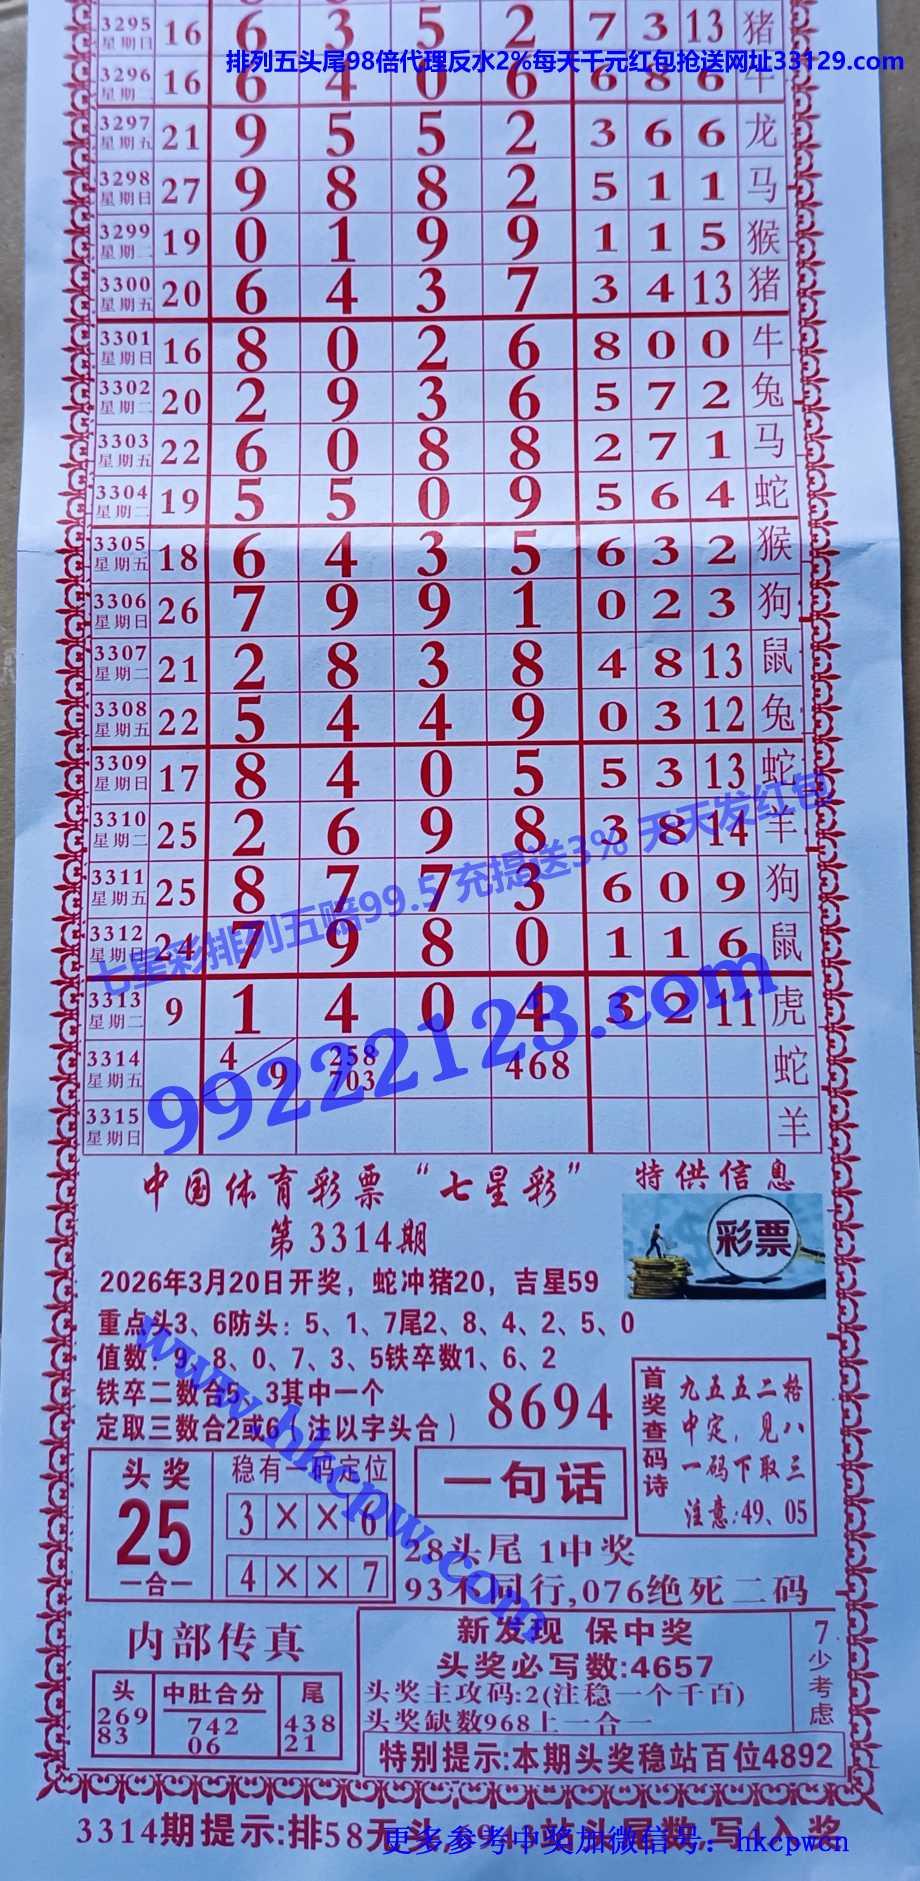 3295 星期日 16 6 3 5 2 7 3 13 猪
排列五头尾98倍代理反水2%每天千元红包抢送网址33129.com
3296 星期二 16 6 4 0 6 6 8 6 牛
3297 星期五 21 9 5 5 2 3 6 6 龙
3298 星期日 27 9 8 8 2 5 1 1 马
3299 星期二 19 0 1 9 9 1 1 5 猴
3300 星期五 20 6 4 3 7 3 4 13 猪
3301 星期日 16 8 0 2 6 8 0 0 牛
3302 星期二 20 2 9 3 6 5 7 2 兔
3303 星期五 22 6 0 8 8 2 7 1 马
3304 星期二 19 5 5 0 9 5 6 4 蛇
3305 星期五 18 6 4 3 5 6 3 2 猴
3306 星期日 26 7 9 9 1 0 2 3 狗
3307 星期二 21 2 8 3 8 4 8 13 鼠
3308 星期五 22 5 4 4 9 0 3 12 兔
3309 星期日 17 8 4 0 5 5 3 13 蛇
3310 星期二 25 2 6 9 8 3 8 14 羊
七星彩排列五赔99.5 充提送3% 天天发红包
3311 星期五 25 8 7 7 3 6 0 9 狗
3312 星期日 24 7 9 8 0 1 1 6 鼠
3313 星期二 9 1 4 0 4 3 2 11 虎
99222123.com
3314 星期五 4/9 258 703 468 蛇
3315 星期日 羊
中国体育彩票“七星彩” 特供信息
第3314期
彩票
2026年3月20日开奖，蛇冲猪20，吉星59
重点头3、6防头：5、1、7尾2、8、4、2、5、0
值数：9、8、0、7、3、5铁卒数1、6、2
铁卒二数合5、3其中一个
定取三数合2或6（注以字头合）
8694
首奖查码诗
九五五二格
中定，见八
一码下取三
注意:49、05
头奖
25
一合一
稳有一码定位
3 × × 6
4 × × 7
一句话
28头尾 1中奖
93不同行,076绝死二码
www.hkcpw.com
内部传真
头 269 83
中肚合分 742 06
尾 438 21
新发现 保中奖
头奖必写数:4657
头奖主攻码:2(注稳一个千百)
头奖缺数968上一合一
7少考虑
特别提示:本期头奖稳站百位4892
3314期提示:排58无头,6943站头尾数,写4入奖
更多参考中奖加微信号：hkcpwcn